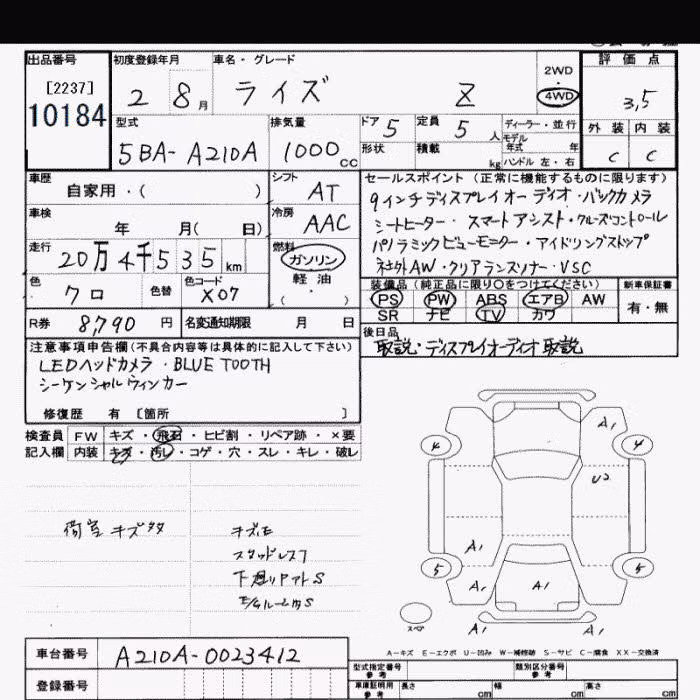 出品番号
[2237]
10184
初度登録年月
2 8月
車名・グレード
ライズ Z
2WD
・
4WD
評価点
3,5
外装 内装
C C
型式
5BA-A210A
排気量
1000cc
ドア 5
形状
定員 5人
積載 kg
ディーラー・並行
モデル
年式 年
ハンドル 左・右
車歴
自家用・( )
シフト
AT
車検
年 月( 日)
冷房
AAC
走行
20万4千535km
燃料
ガソリン
軽油
・( )
色
クロ
色替
色コード
X07
R券 8,790円
名変通知期限 月 日
セールスポイント(正常に機能するものに限ります)
9インチディスプレイオーディオ・バックカメラ
シートヒーター・スマートアシスト・クルーズコントロール
パノラミックビューモニター・アイドリングストップ
社外AW・クリアランスソナー・VSC
装備品(純正品に限り〇をつけてください)
PS PW ABS エアB AW
SR ナビ TV カワ
新車保証書
有・無
後日品
取説・ディスプレイオーディオ取説
注意事項申告欄(不具合内容等は具体的に記入して下さい)
LEDヘッドカメラ・BLUETOOTH
シーケンシャルウィンカー
修復歴 有 [箇所 ]
検査員
記入欄
FW キズ・飛石・ヒビ割・リペア跡・×要
内装 キズ・汚レ・コゲ・穴・スレ・キレ・破レ
荷室 キズ多
キズE
スタッドレス7
下廻りアトS
E/GルームS
A1
4
4
U2
A1
5
5
A1
A1
A1
A1
A1
スペア
A-キズ E-エクボ U-凹み W-補修跡 S-サビ C-腐食 XX-交換済
車台番号 A210A-0023412
登録番号
型式指定番号
参考
類別区分番号
参考
車庫証明用
参考
長さ cm 幅 cm 高さ cm